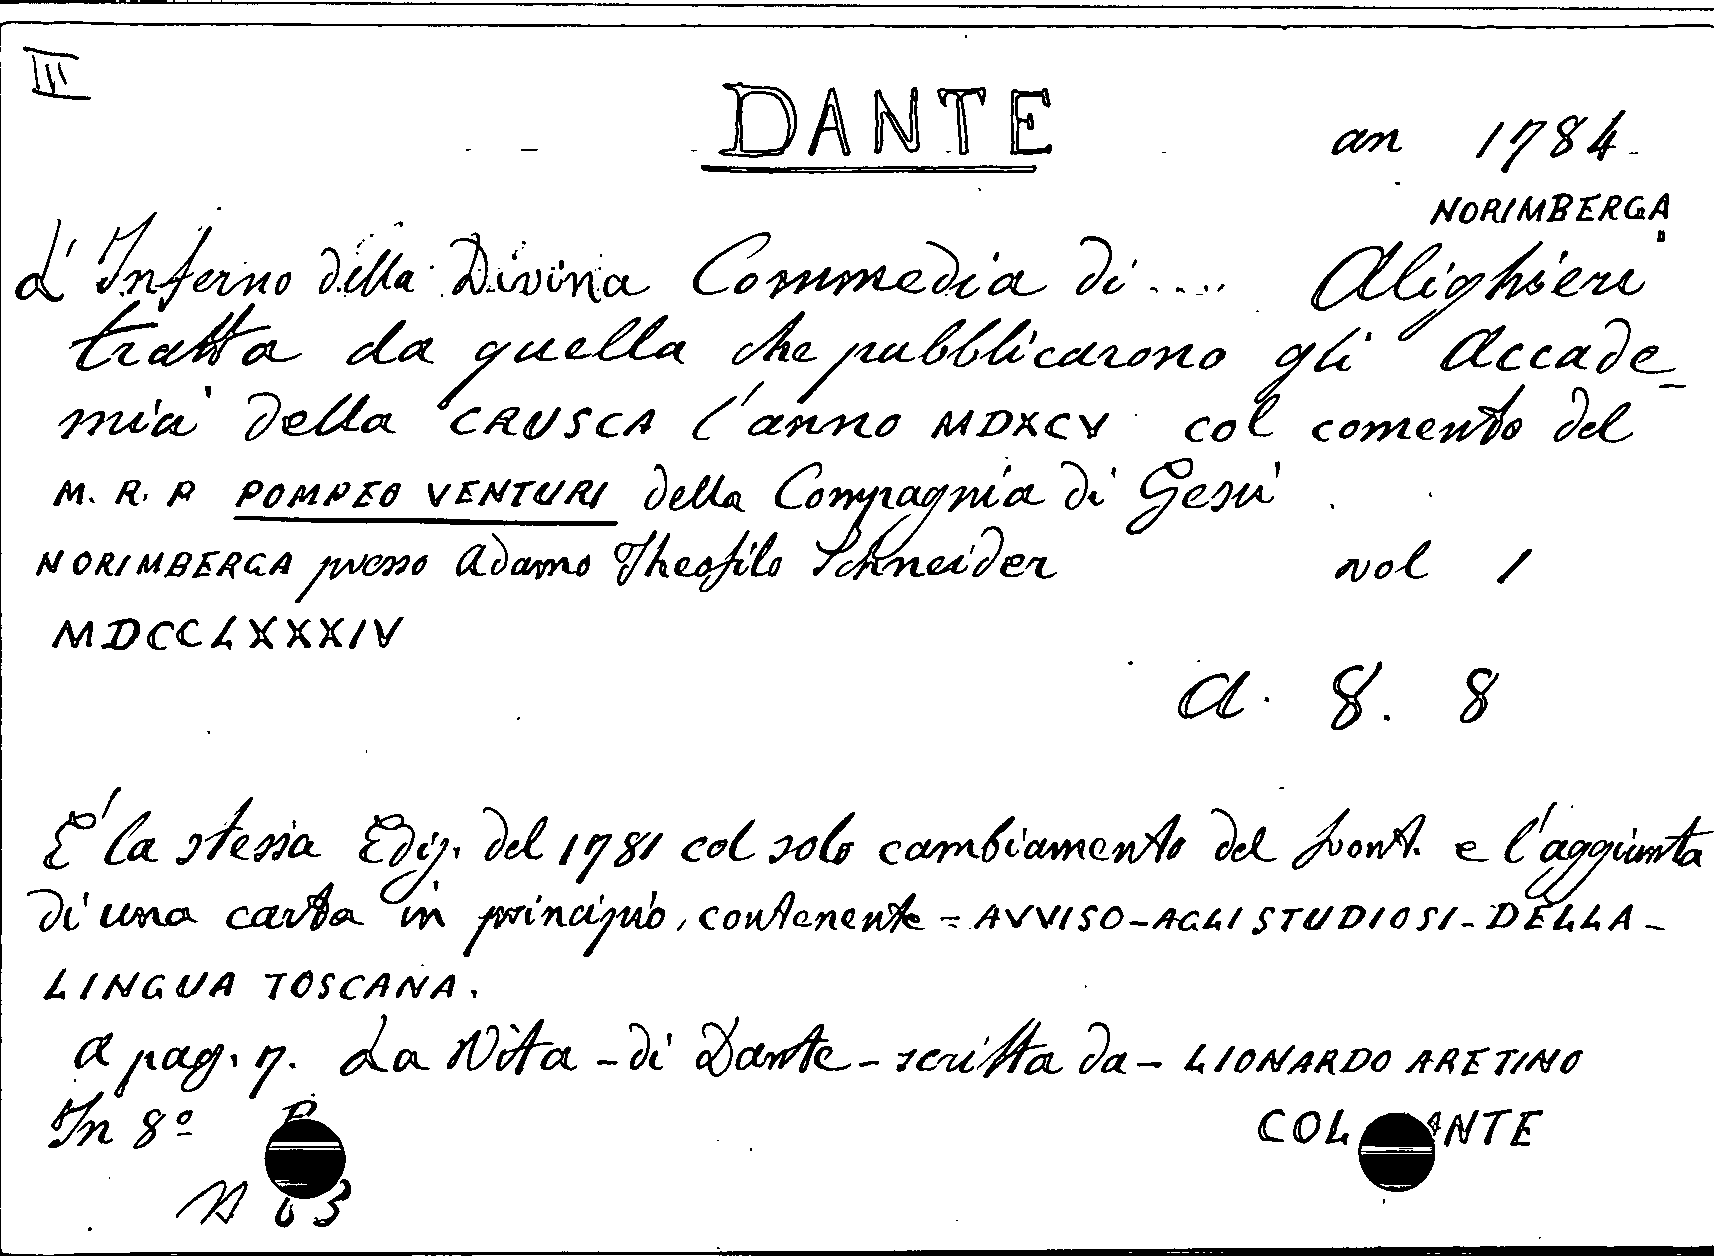 III
DANTE
an 1784
NORIMBERGA
L'Inferno della Divina Commedia di .... Alighieri
tratta da quella che pubblicarono gli Accade-
mia della CRUSCA l'anno MDXCV col comento del
M. R. P POMPEO VENTURI della Compagnia di Gesù
NORIMBERGA presso Adamo Theofilo Schneider vol 1
MDCCLXXXIV
A. 8. 8
E' la stessa Ediz. del 1781 col solo cambiamento del front. e l'aggiunta
di una carta in principio, contenente = AVVISO-AGLI STUDIOSI-DELLA-
LINGUA TOSCANA.
A pag. 7. La Vita - di Dante - scritta da - LIONARDO ARETINO
In 8º
COL